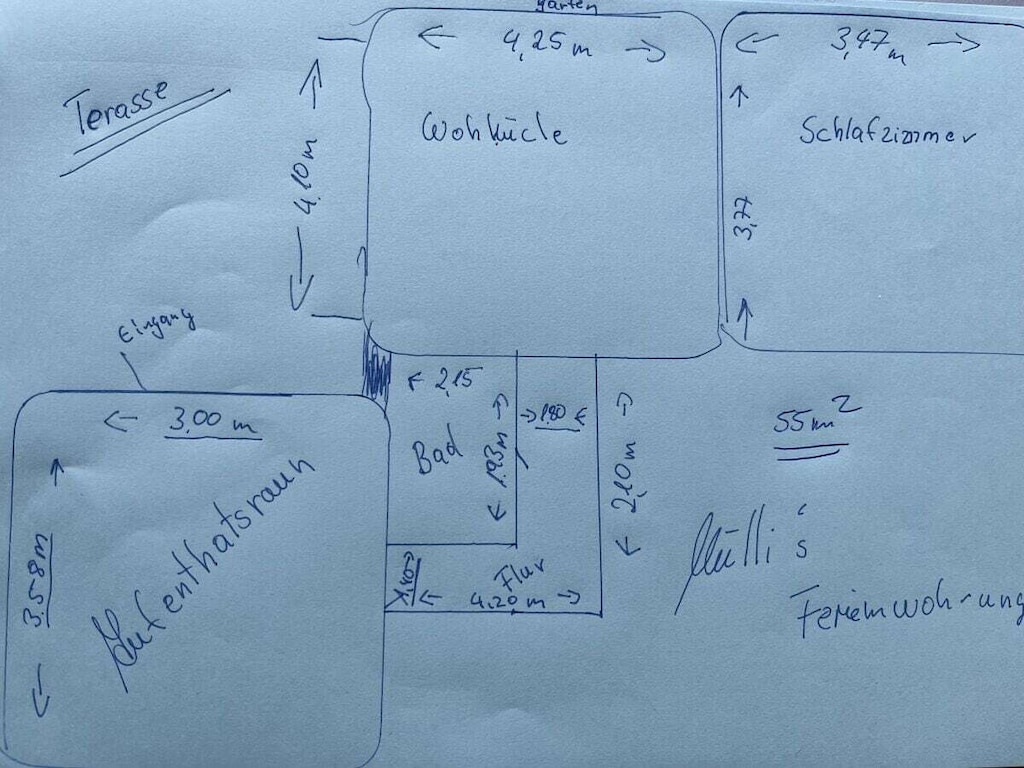 Garten
← 4,25 m →
← 3,47 m →
Terasse
Wohküche
Schlafzimmer
4.10 m
3,77
Eingang
← 2,15
← 3,00 m
→ 1,80 ←
55 m²
Bad
1.93 m
2,10 m
Aufenthatsraum
3.58 m
Mülli's
Flur
1,40
← 4.20 m →
Ferienwohnung